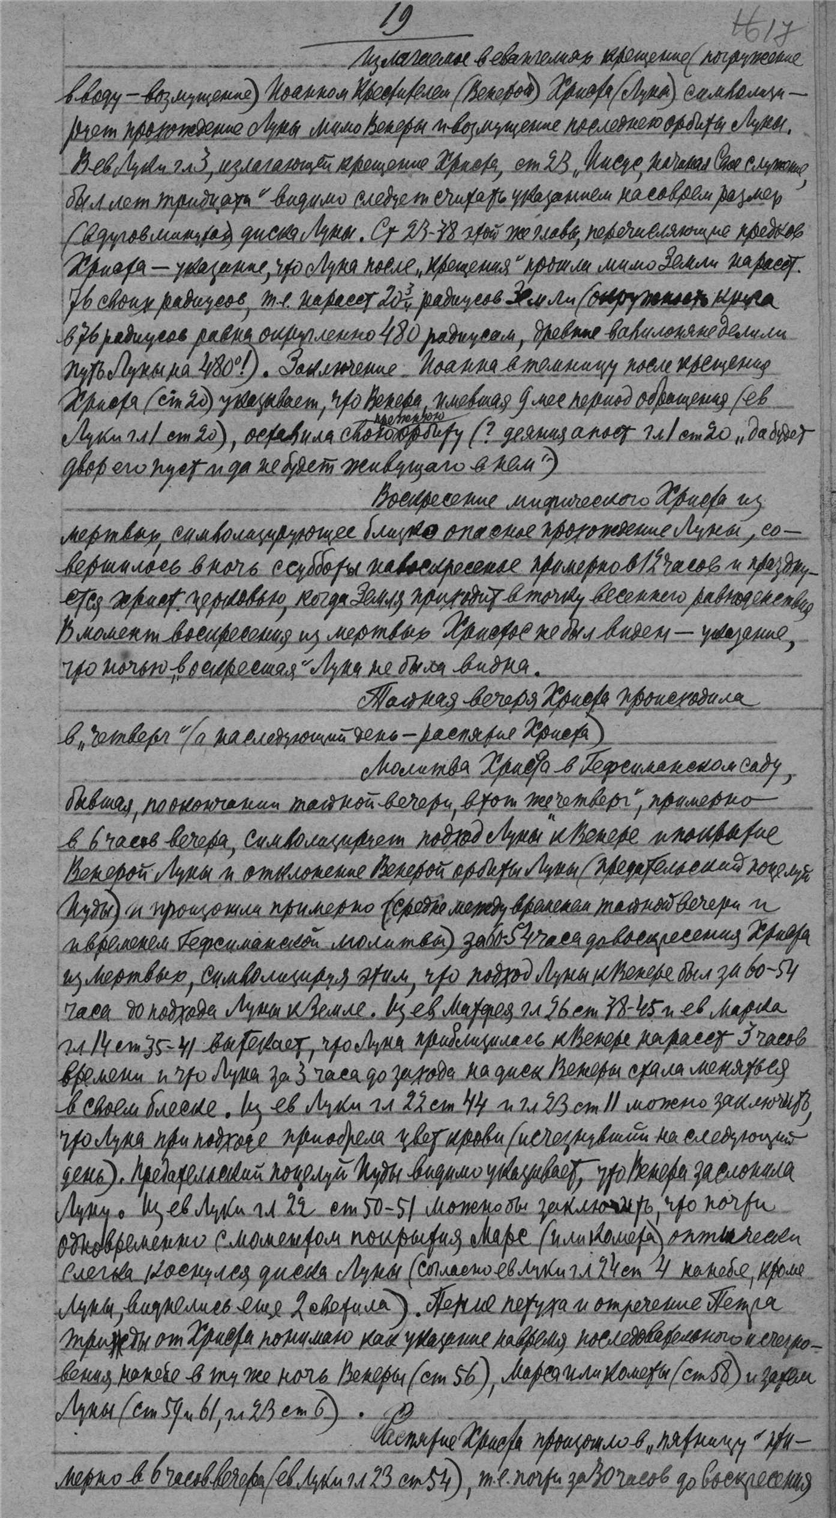 19
Излагаемое в евангелиях крещение (погружение
в воду – возмущение) Иоанном Крестителем (Венерой) Христа (Луны) символизи–
рует прохождение Луны мимо Венеры и возмущение последнею орбиты Луны.
В ев Луки гл 3, излагающей крещение Христа, ст 23 „Иисус, начиная Свое служение,
был лет тридцати“ видимо следует считать указанием на соврем размер
(в дугов минутах) диска Луны. Ст 23-38 этой же главы, перечисляющие предков
Христа – указание, что Луна после „крещения“ прошла мимо Земли на расст.
76 своих радиусов, т.е. на расст 20¾ радиусов Земли (окружность круга
в 76 радиусов равна округленно 480 радиусам, древние вавилоняне делили
путь Луны на 480°!). Заключение Иоанна в темницу после крещения
Христа (ст 20) указывает, что Венера, имевшая 9 мес период обращения (ев
Луки гл 1 ст 20), оставила свою прежнюю орбиту (? деяния апост гл 1 ст 20 „да будет
двор его пуст и да не будет живущаго в нем“)
Воскресение мифического Христа из
мертвых, символизирующее близко опасное прохождение Луны, со–
вершилось в ночь с субботы на воскресенье примерно в 12 часов и праздну–
ется христ. церковью, когда Земля приходит в точку весеннего равноденствия
В момент воскресения из мертвых Христос не был виден – указание,
что ночью „воскресшая“ Луна не была видна.
Тайная вечеря Христа происходила
в „четверг“ (а на следующий день – распятие Христа)
Молитва Христа в Гефсиманском саду,
бывшая, по окончании тайной вечери, в тот же „четверг“, примерно
в 6 часов вечера, символизирует подход Луны к Венере и покрытие
Венерой Луны и отклонение Венерой орбиты Луны (предательский поцелуй
Иуды) и произошли примерно (среднее между временем тайной вечери и
и временем Гефсиманской молитвы) за 60-54 часа до воскресения Христа
из мертвых, символизируя этим, что подход Луны к Венере был за 60-54
часа до подхода Луны к Земле. Из ев Матфея гл 26 ст 38-45 и ев Марка
гл 14 ст 35-41 вытекает, что Луна приблизилась к Венере на расст 3 часов
времени и что Луна за 3 часа до захода на диск Венеры стала меняться
в своем блеске. Из ев Луки гл 22 ст 44 и гл 23 ст 11 можно заключить,
что Луна при подходе приобрела цвет крови (исчезнувший на следующий
день). Предательский поцелуй Иуды видимо указывает, что Венера заслонила
Луну. Из ев Луки гл 22 ст 50-51 можно бы заключить, что почти
одновременно с моментом покрытия Марс (или комета) оптически
слегка коснулся диска Луны (согласно ев Луки гл 24 ст 4 на небе, кроме
Луны, виднелись еще 2 светила). Пение петуха и отречение Петра
трижды от Христа понимаю как указание на время последовательного исчезно–
вения на небе в ту же ночь Венеры (ст 56), Марса или кометы (ст 58) и затем
Луны (ст 59 и 61, гл 23 ст 6).
Распятие Христа произошло в „пятницу“ при–
мерно в 6 часов вечера (ев Луки гл 23 ст 54), т.е. почти за 30 часов до воскресения